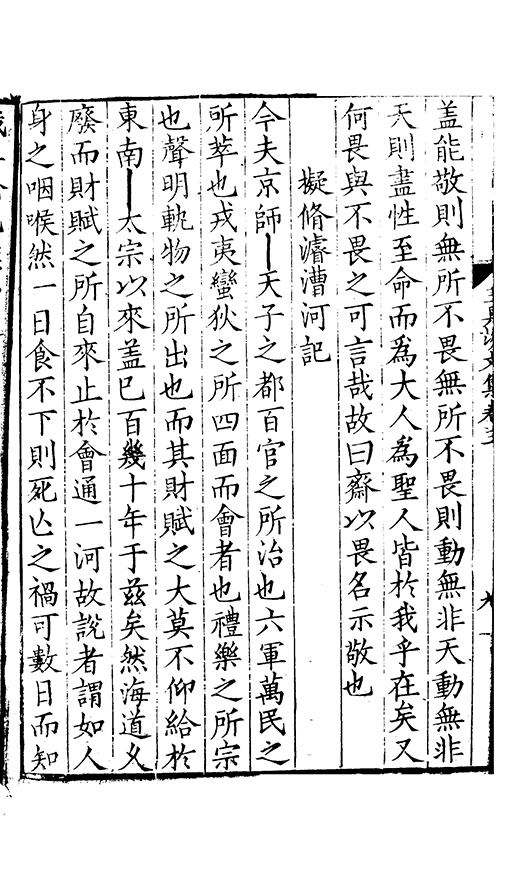 盖能敬則無所不畏無所不畏則動無非天動無非
天則盡性至命而爲大人爲聖人皆於我乎在矣又
何畏與不畏之可言哉故曰齋以畏名示敬也
擬脩濬漕河記
今夫京師天子之都百官之所治也六軍萬民之
所萃也戎夷蠻狄之所四面而會者也禮樂之所宗
也聲明軌物之所出也而其財賦之大莫不仰給於
東南太宗以來盖已百幾十年于茲矣然海道乂
廢而財賦之所自來止於會通一河故說者謂如人
身之咽喉然一日食不下則死亾之禍可數日而知